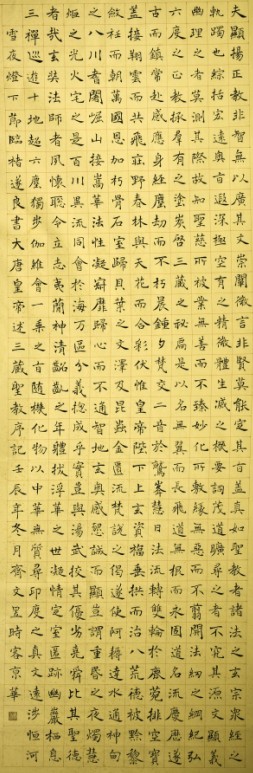 夫顯揚正教非智無以廣其文崇闡微言非賢莫能定其旨蓋真如聖教者諸法之玄宗眾經之
軌躅也綜括宏遠奧旨遐深極空有之精微體生滅之機要詞茂道曠尋之者不究其源文顯義
幽理之者莫測其際故知聖慈所被業無善而不臻妙化所敷緣無惡而不翦開法網之綱紀弘
六度之正教拯群有之塗炭啓三藏之秘扃是以名無翼而長飛道無根而永固道名流慶歷遂
古而鎮常赴感應身經塵劫而不朽晨鍾夕梵交二音於鷲峯慧日法流轉雙輪於鹿菀排空寶
蓋接翔雲而共飛莊野春林與天花而合彩伏惟皇帝陛下上玄資福垂拱而治八荒德被黔黎
斂衽而朝萬國恩加朽骨石室歸貝葉之文澤及昆蟲金匱流梵說之偈遂使阿耨達水通神甸
之八川耆闍崛山接嵩華法性凝寂靡歸心而不通智地玄奧感懇誠而遂顯豈謂重昏之夜燭慧
炬之光火宅之是百川異流同會於海萬區分義總成乎實豈與湯武校其優劣堯舜比其聖德
者哉玄奘法師者夙懷聰令立志夷簡神清齠齔之年體拔浮華之世凝情定室匿跡幽巖栖息
三禪巡遊十地超六塵獨步伽維會一乘之旨隨機化物以中華無質尋印度之真文遠涉恒河
雪夜燈下節臨褚遂良書大唐皇帝述三藏聖教序記壬辰年冬月齊文呈時客京華